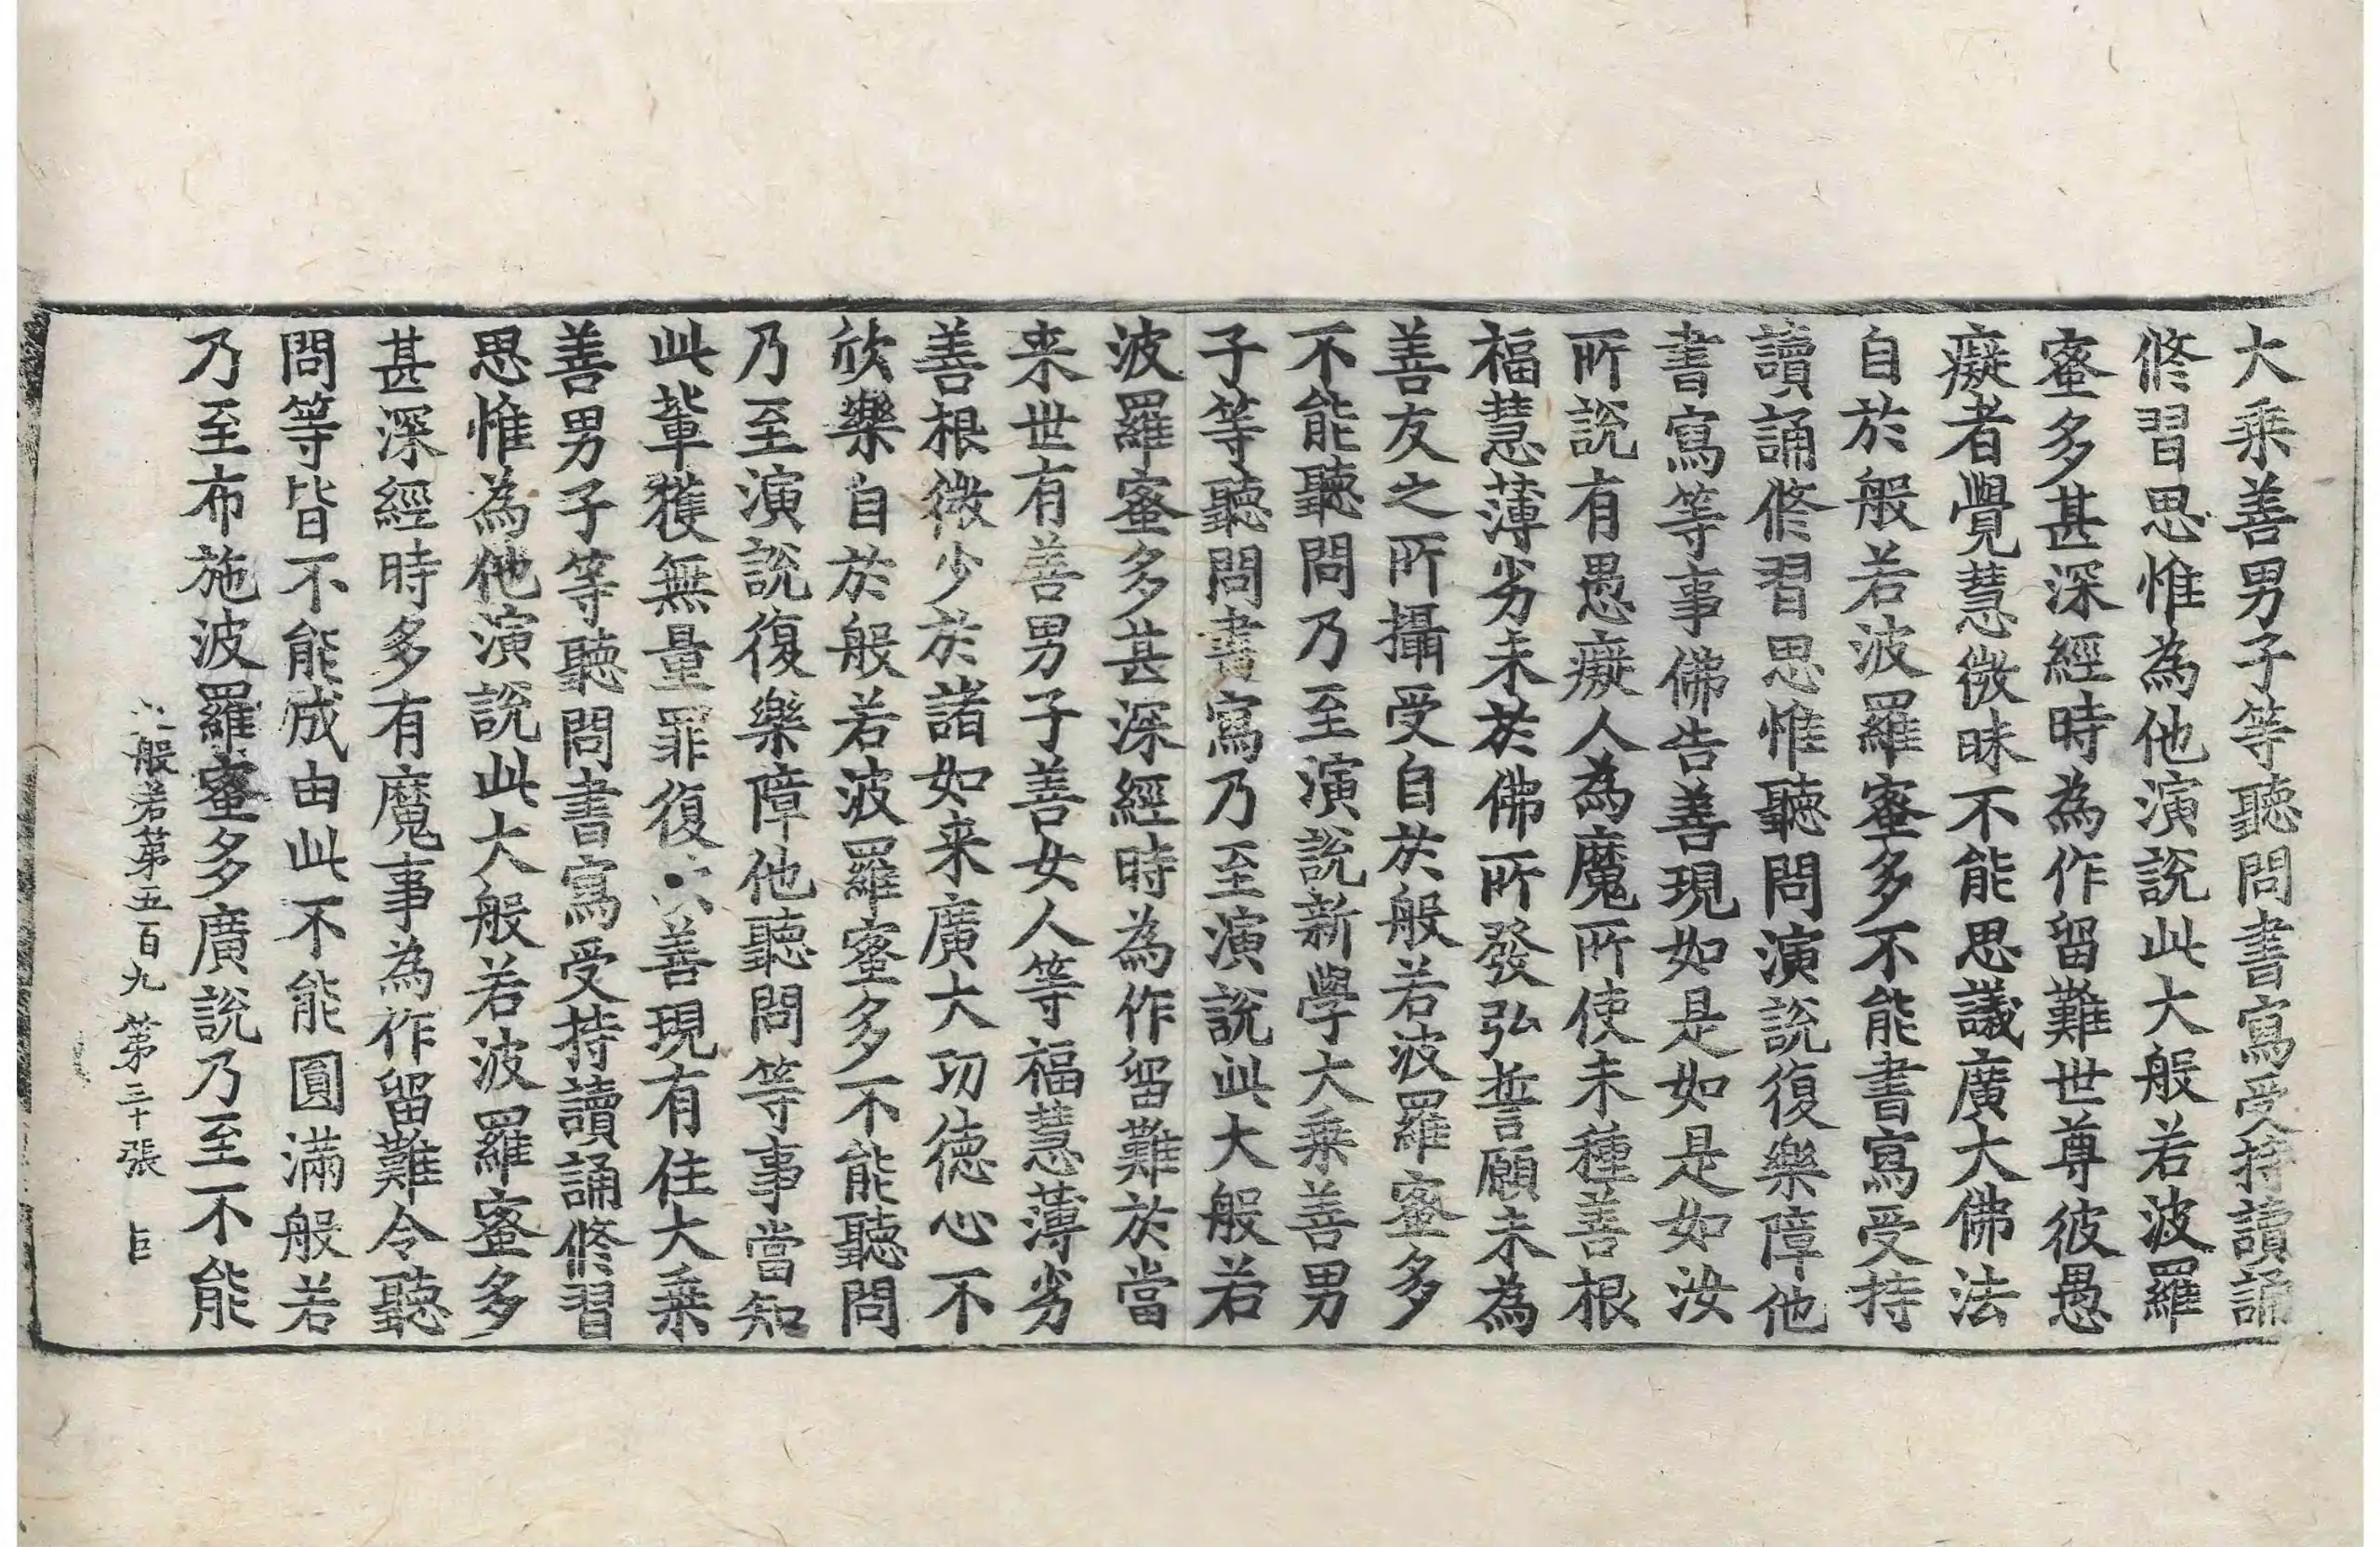 大乘善男子等聽問書寫受持讀誦
修習思惟為他演說此大般若波羅
蜜多甚深經時為作留難世尊彼愚
癡者覺慧微昧不能思議廣大佛法
自於般若波羅蜜多不能書寫受持
讀誦修習思惟聽問演說復樂障他
書寫等事佛告善現如是如是如汝
所說有愚癡人為魔所使未種善根
福慧薄劣未於佛所發弘誓願未為
善友之所攝受自於般若波羅蜜多
不能聽問乃至演說新學大乘善男
子等聽問書寫乃至演說此大般若
波羅蜜多甚深經時為作留難於當
来世有善男子善女人等福慧薄劣
善根微少於諸如来廣大功德心不
欣樂自於般若波羅蜜多不能聽問
乃至演說復樂障他聽問等事當知
此軰獲無量罪復次善現有住大乘
善男子等聽問書寫受持讀誦修習
思惟為他演說此大般若波羅蜜多
甚深經時多有魔事為作留難令聽
問等皆不能成由此不能圓滿般若
乃至布施波羅蜜多廣說乃至不能
般若第五百九 第三十張